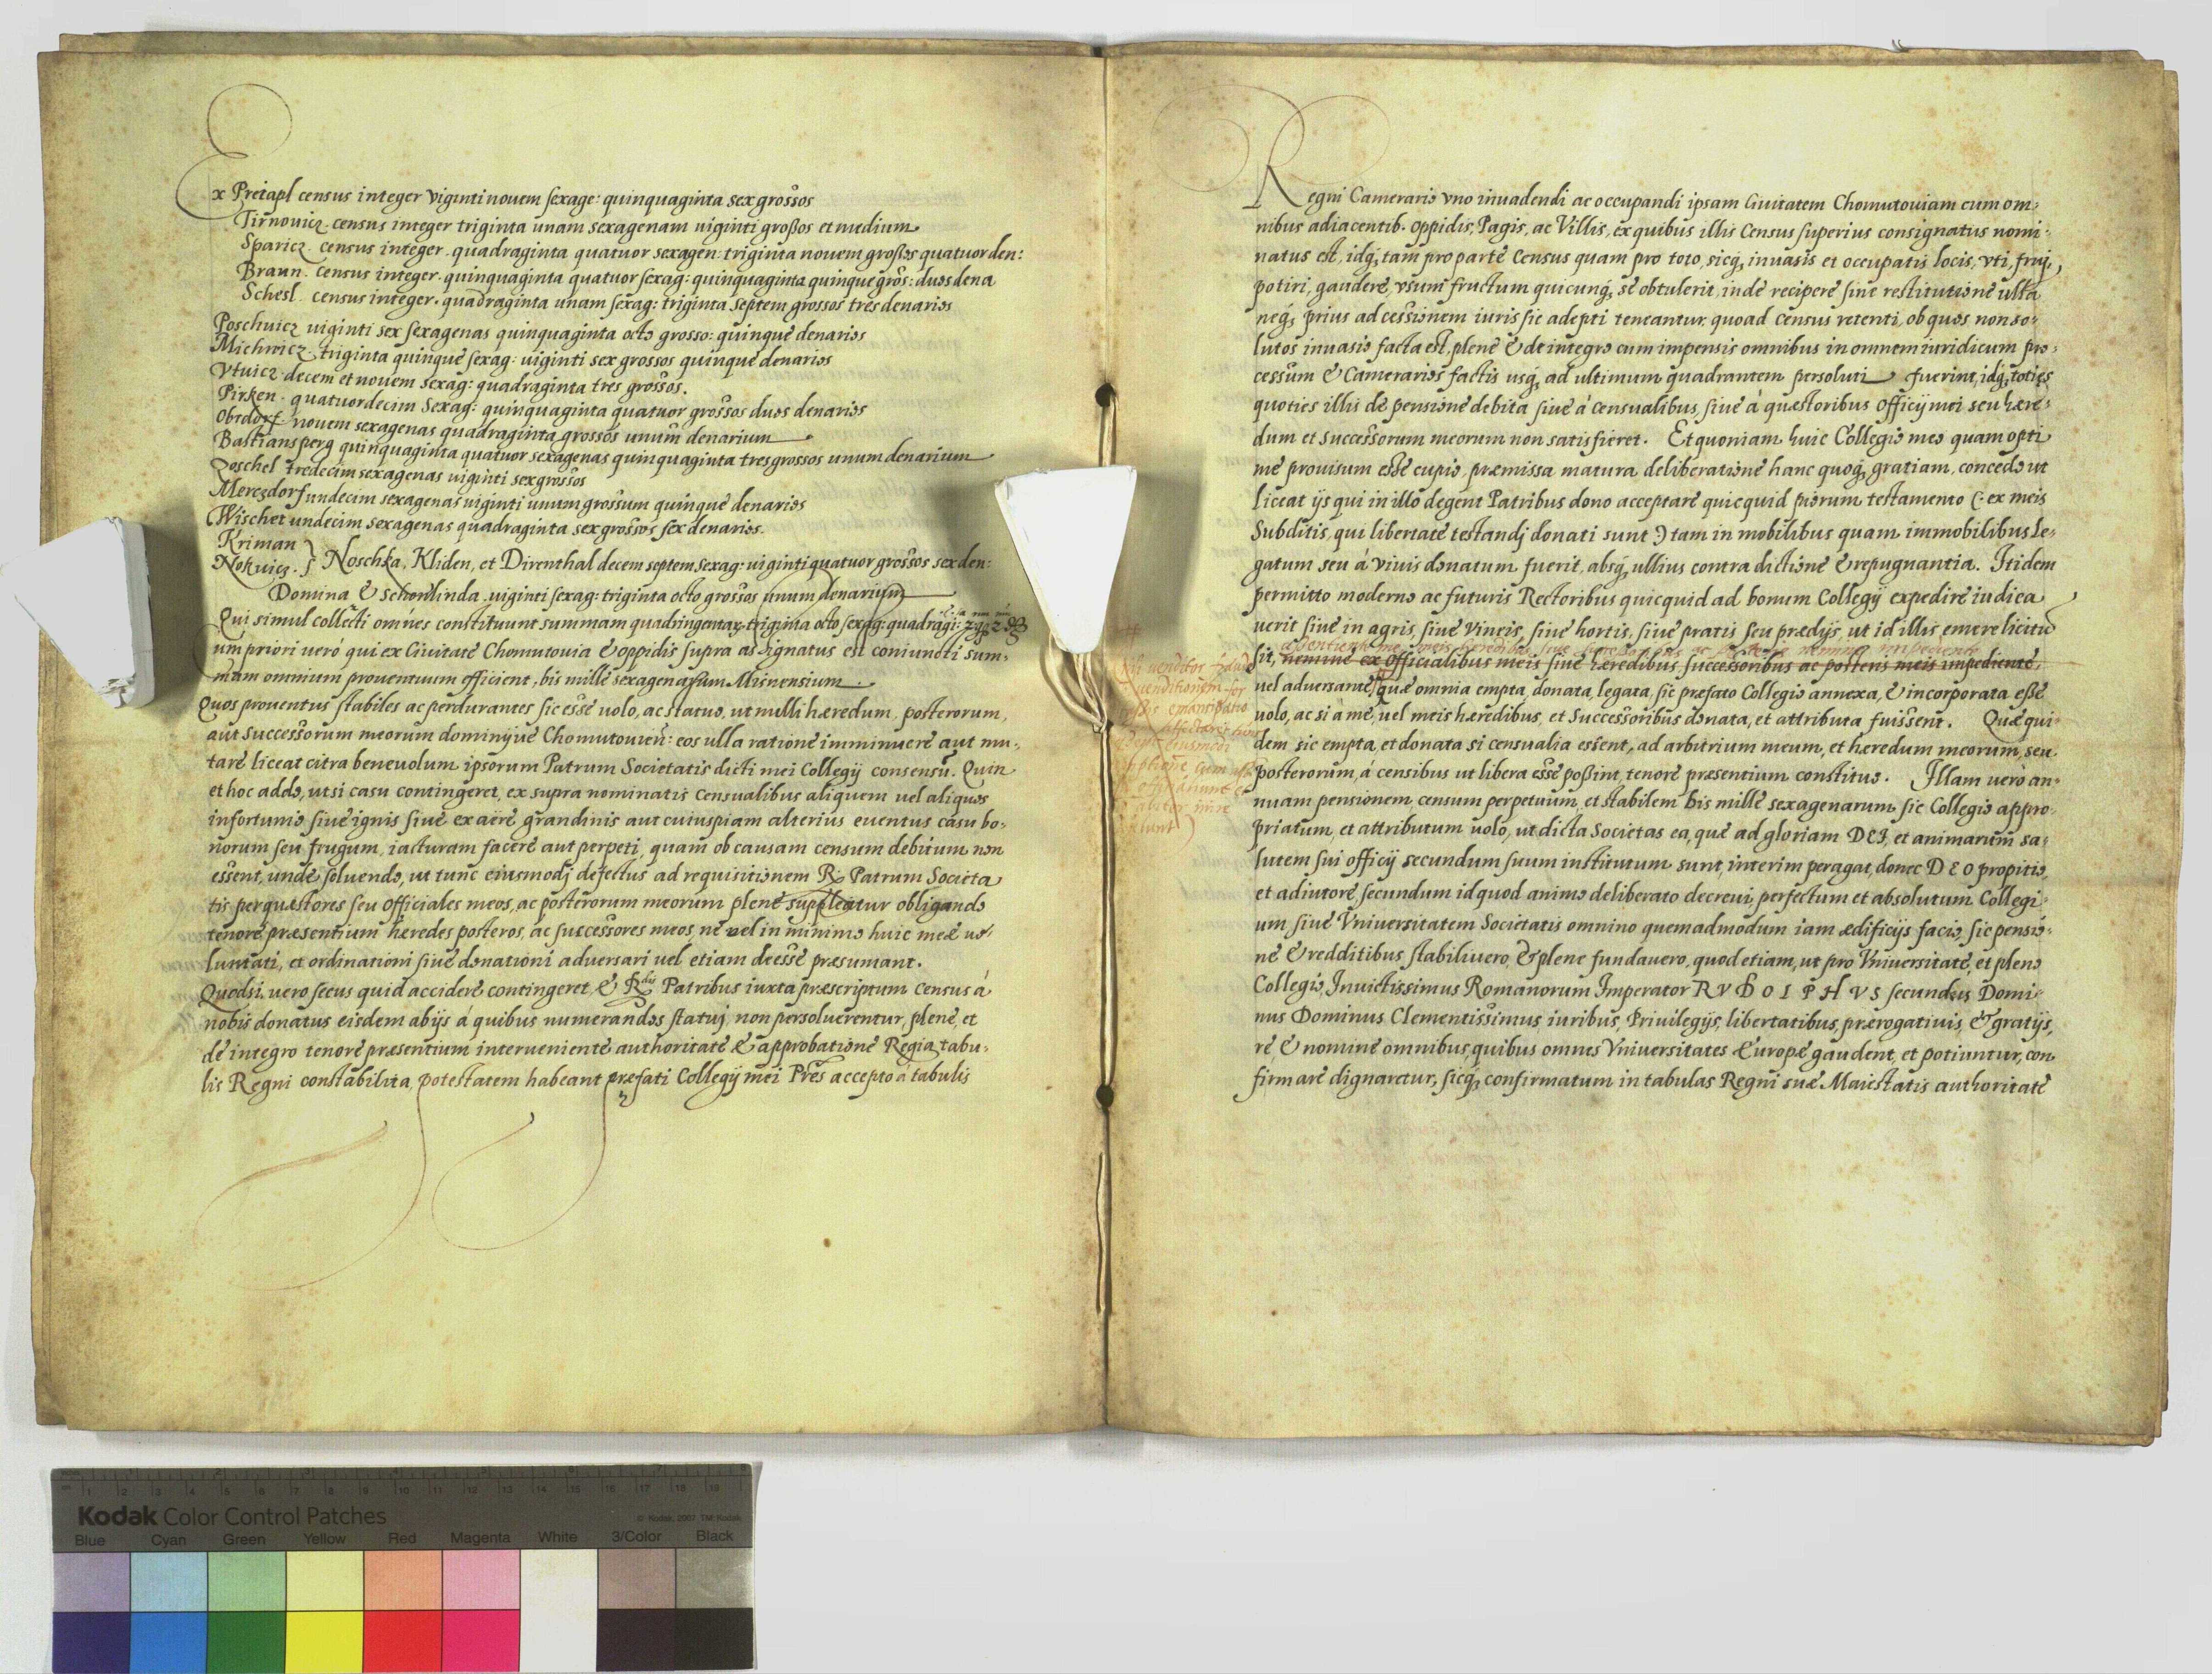 Ex Preiapl census integer viginti nouem sexage: quinquaginta sex grossos
Tirnouicz census integer triginta unam sexagenam uiginti grossos et medium
Sparicz census integer quadraginta quatuor sexagen: triginta nouem grossos quatuor den:
Braun census integer quinquaginta quatuor sexag: quinquaginta quinque gros: duos dena
Schesl census integer quadraginta unam sexag: triginta septem grossos tres denarios
Poschuicz uiginti sex sexagenas quinquaginta octo grosso: quinque denarios
Michnicz triginta quinque sexag: uiginti sex grossos quinque denarios
Vtuicz decem et nouem sexag: quadraginta tres grossos.
Pirken quatuordecim sexag: quinquaginta quatuor grossos duos denarios
Obrdorf nouem sexagenas quadraginta grossos unum denarium
Bastiansperg quinquaginta quatuor sexagenas quinquaginta tres grossos unum denarium
Zoschel tredecim sexagenas uiginti sex grossos
Merczdorf undecim sexagenas uiginti unum grossum quinque denarios
Wischet undecim sexagenas quadraginta sex grossos sex denarios.
Kriman
Nokuicz. } Noschka, Kliden, et Direnthal decem septem sexag: uiginti quatuor grossos sex den:
Domina & Schonlinda uiginti sexag: triginta octo grossos unum denarium
Qui simul collecti omnes constituunt summam quadringentar triginta octo sexag: quadragi:
um priori ueró qui ex Ciuitate Chomutouia & oppidis supra assignatus est coniuncti sum-
mam omnium prouentuum efficient, bis mille sexagenarum Misnensium.
Quos prouentus stabiles ac perdurantes sic esse uolo, ac statuo, ut nulli hæredum, posterorum,
aut Successorum meorum dominijue Chomutouien: eos ulla ratione imminuere aut mu-
tare liceat citra beneuolum ipsorum Patrum Societatis dicti mei Collegij consensu. Quin
et hoc addo, ut si casu contingeret, ex supra nominatis Censualibus aliquem uel aliquos
infortunio siue ignis siue ex aere grandinis aut cuiuspiam alterius euentus casu bo-
norum seu frugum, iacturam facere aut perpeti, quam ob causam censum debitum non
essent, unde soluendo, ut tunc eiusmodj defectus ad requisitionem R: Patrum Societa
tis per quæstores seu Officiales meos, ac posterorum meorum plene suppleatur obligando
tenore præsentium hæredes posteros, ac successores meos, ne uel in minimo huic meæ uo-
luntati, et ordinationi siue donationi aduersari uel etiam deesse præsumant.
Quodsi uero secus quid accidere contingeret, & Rdis Patribus iuxta præscriptum Census á
nobis donatus eisdem ab ijs á quibus numerandos statui, non persoluerentur, plene, et
de integro tenore præsentium interueniente authoritate & approbatione Regia tabu-
lis Regni constabilita, potestatem habeant præfati Collegij mei Pres accepto á tabulis
Regni Camerario vno inuadendi ac occupandi ipsam Ciuitatem Chomutouiam cum om-
nibus adiacentib. oppidis, Pagis, ac Villis, ex quibus illis Census superius consignatus nomi-
natus est, idq, tam pro parte Census quam pro toto, sicq, inuasis et occupatis locis, vti, frui,
potiri, gaudere, vsum fructum quicunq, se obtulerit, inde recipere sine restitutione ulla
neq, prius ad cessionem iuris sic adepti teneantur, quoad Census retenti, ob quos non so-
lutos inuasio facta est, plene & de integro cum impensis omnibus in omnem iuridicum pro-
cessum & Camerarios factis usq, ad ultimum quadrantem persoluti fuerint, idq, toties
quoties illis de pensione debita siue á censualibus, siue á quæstoribus Officij mei seu hære-
dum et Successorum meorum non satisfieret. Et quoniam huic Collegio meo quam opti
me prouisum esse cupio, præmissa matura deliberatione hanc quoq, gratiam, concedo ut
liceat ijs qui in illo degent Patribus dono acceptare quicquid piorum testamento (: ex meis
Subditis, qui libertate testandj donati sunt :) tam in mobilibus quam immobilibus Le-
gatum seu á viuis donatum fuerit, absq, ullius contradictione & repugnantia. Itidem
permitto moderno ac futuris Rectoribus quicquid ad bonum Collegij expedire iudica
uerit siue in agris, siue vineis, siue hortis, siue pratis seu prædijs, ut id illis emere licitu
sit, nemine ex Officialibus meis siue hæredibus successoribus ac posteris meis impediente,
uel aduersante, quæ omnia empta, donata, legata, sic prefato Collegio annexa, & incorporata esse
uolo, ac si á me, uel meis hæredibus, et Successoribus donata, et attributa fuissent. Quæ qui-
dem sic empta, et donata si censualia essent, ad arbitrium meum, et hæredum meorum, seu
posterorum, á censibus ut libera esse possint, tenore præsentium constituo. Illam uerò an-
nuam pensionem, censum perpetuum, et stabilem bis mille sexagenarum sic Collegio appro-
priatum, et attributum uolo, ut dicta Societas ea, quæ ad gloriam DEI, et animarum sa-
lutem sui officij secundum suum institutum sunt, interim peragat, donec DEO propitio,
et adiutore, secundum id quod animo deliberato decreui, perfectum et absolutum Collegi-
um, siue Vniuersitatem Societatis omnino quemadmodum iam ædificijs facio, sic pensio-
ne & redditibus stabiliuero, & plene fundauero, quod etiam, ut pro Vniuersitate, et pleno
Collegio, Inuictissimus Romanorum Imperator RVDOLPHVS secundus Domi-
nus Dominus Clementissimus iuribus, Priuilegijs, libertatibus, prærogatiuis, & gratijs,
re & nomine omnibus, quibus omnes Vniuersitates Europæ gaudent, et potiuntur, con-
firmare dignaretur, sicq, confirmatum in tabulas Regni suæ Maiestatis authoritate
Kodak Color Control Patches
© Kodak, 2007 TM: Kodak
Blue Cyan Green Yellow Red Magenta White 3/Color Black